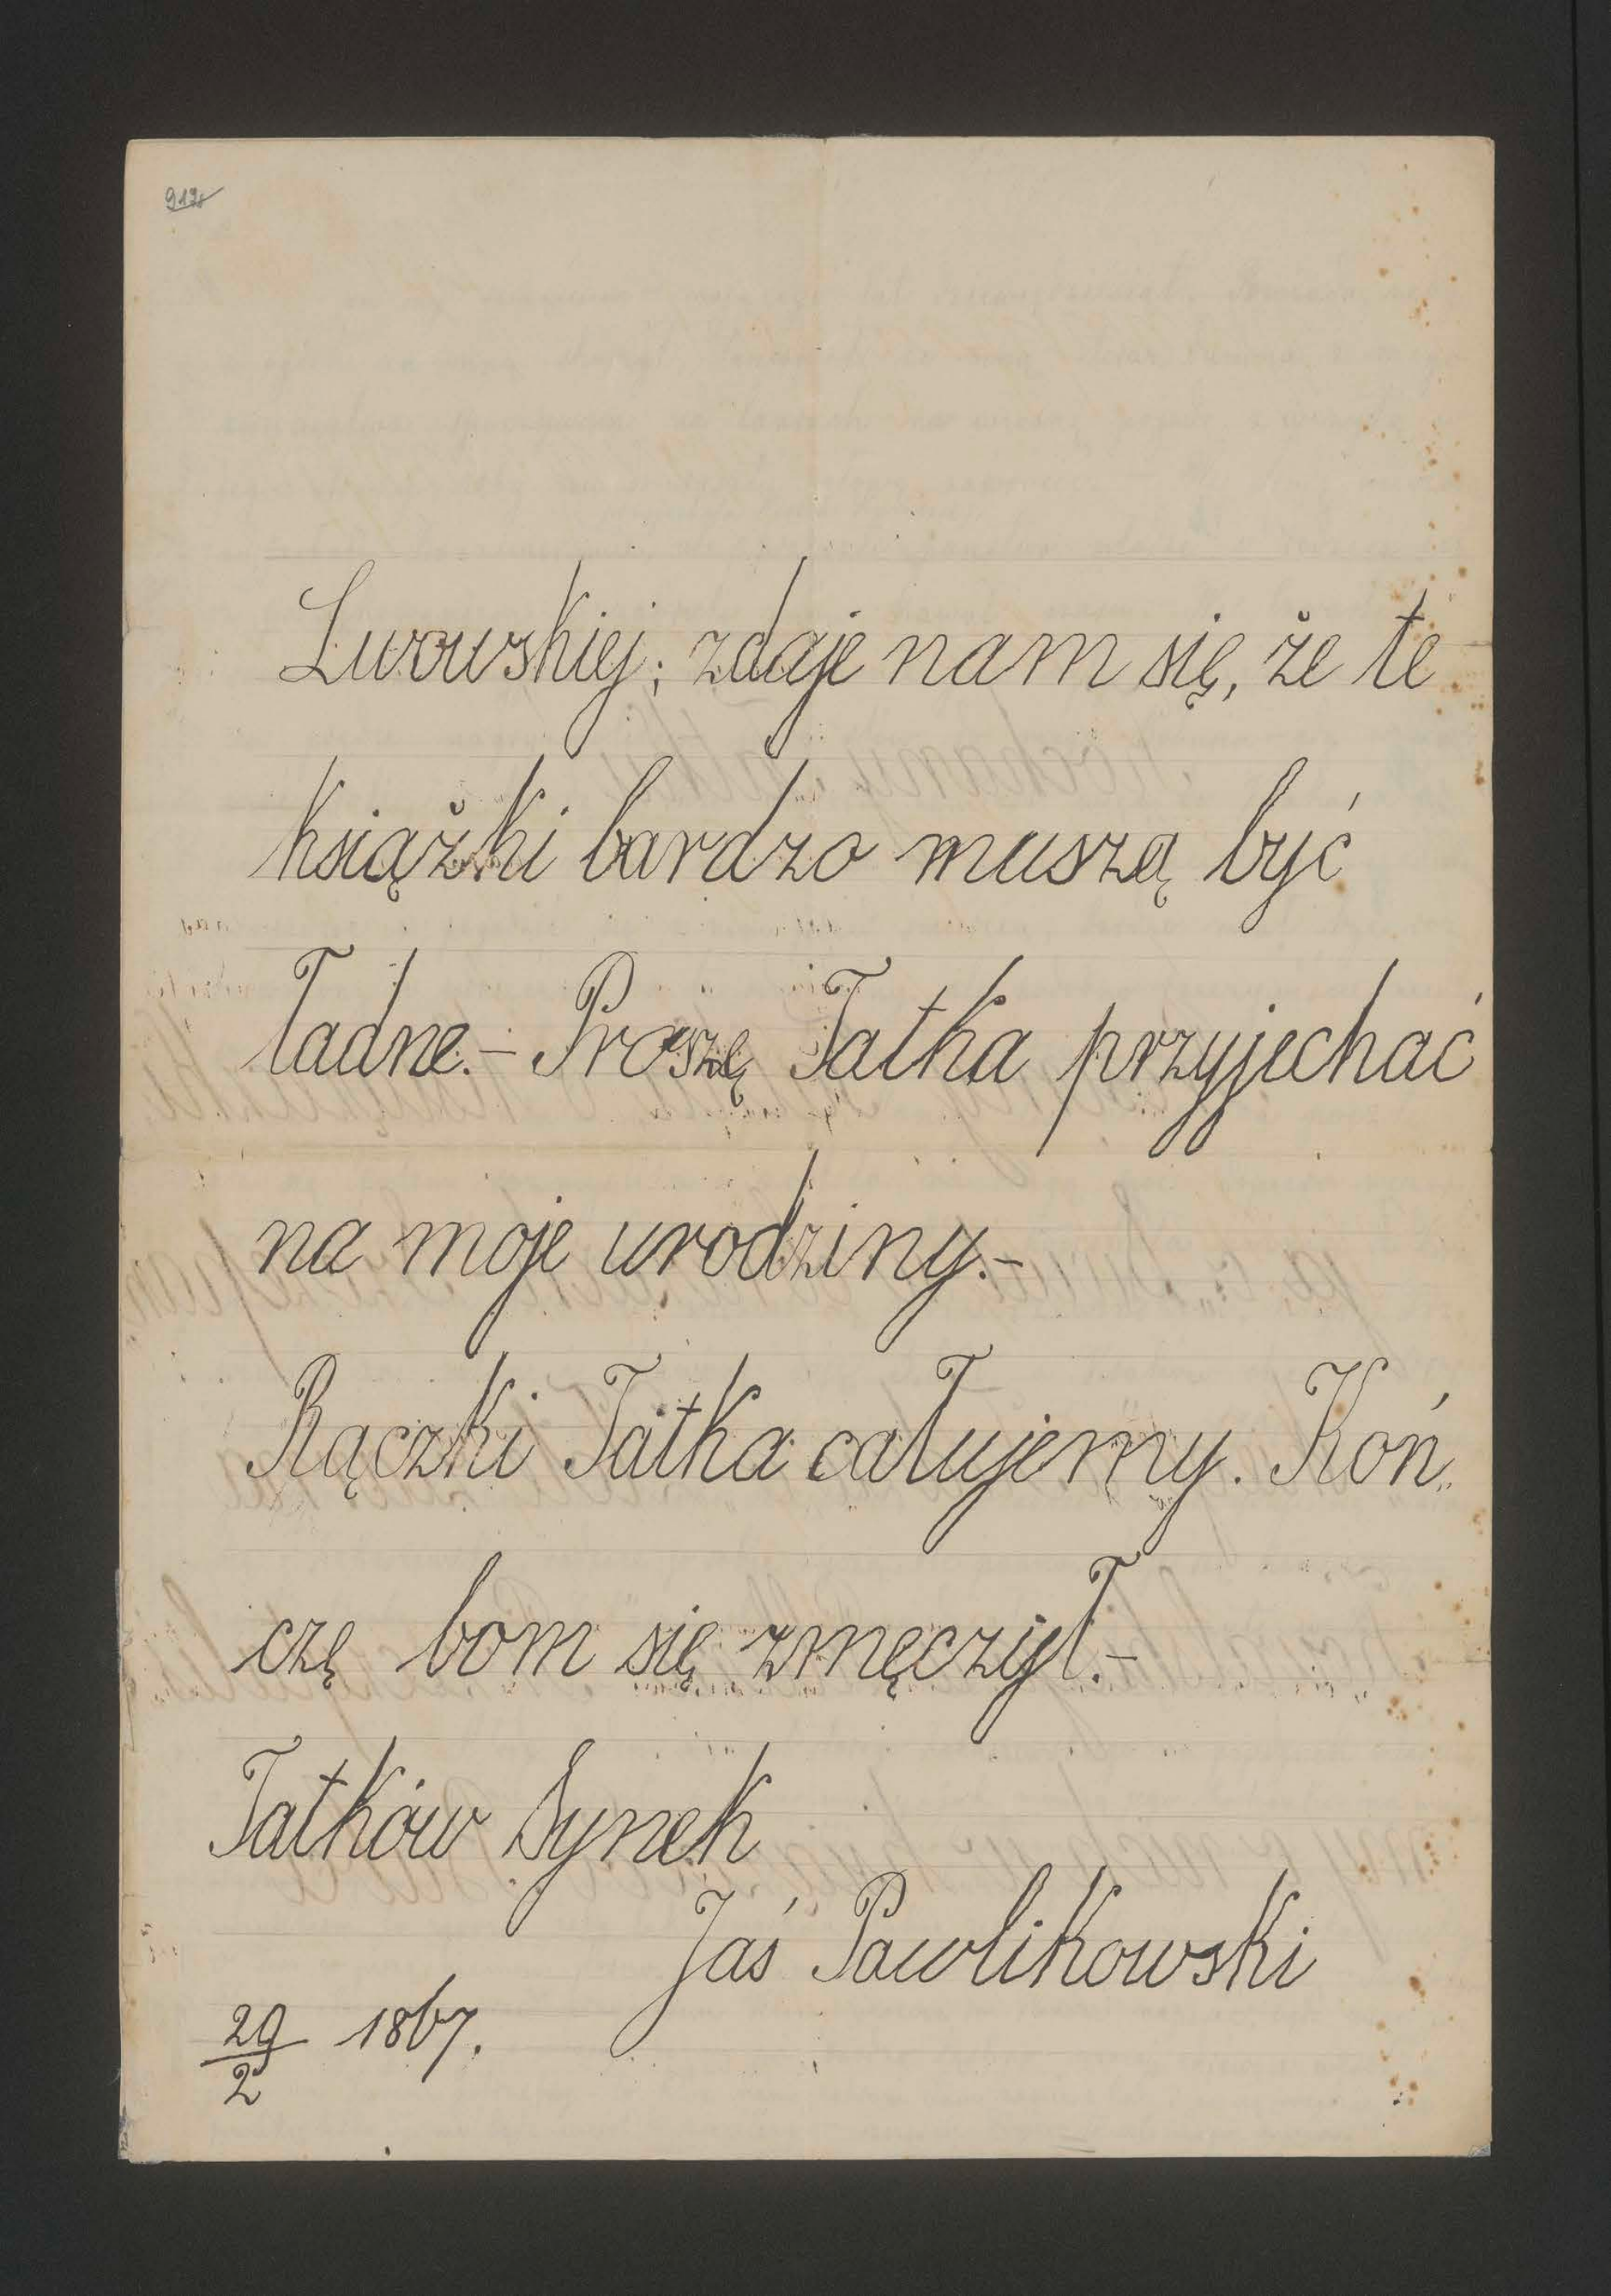 Lwowskiej; zdaje nam się, że te
książki bardzo muszą być
ładne.– Proszę Tatka przyjechać
na moje urodziny.–
Rączki Tatka całujemy. Koń„
czę bom się zmęczył.–
Tatków Synek
Jaś Pawlikowski
29/2 1867.